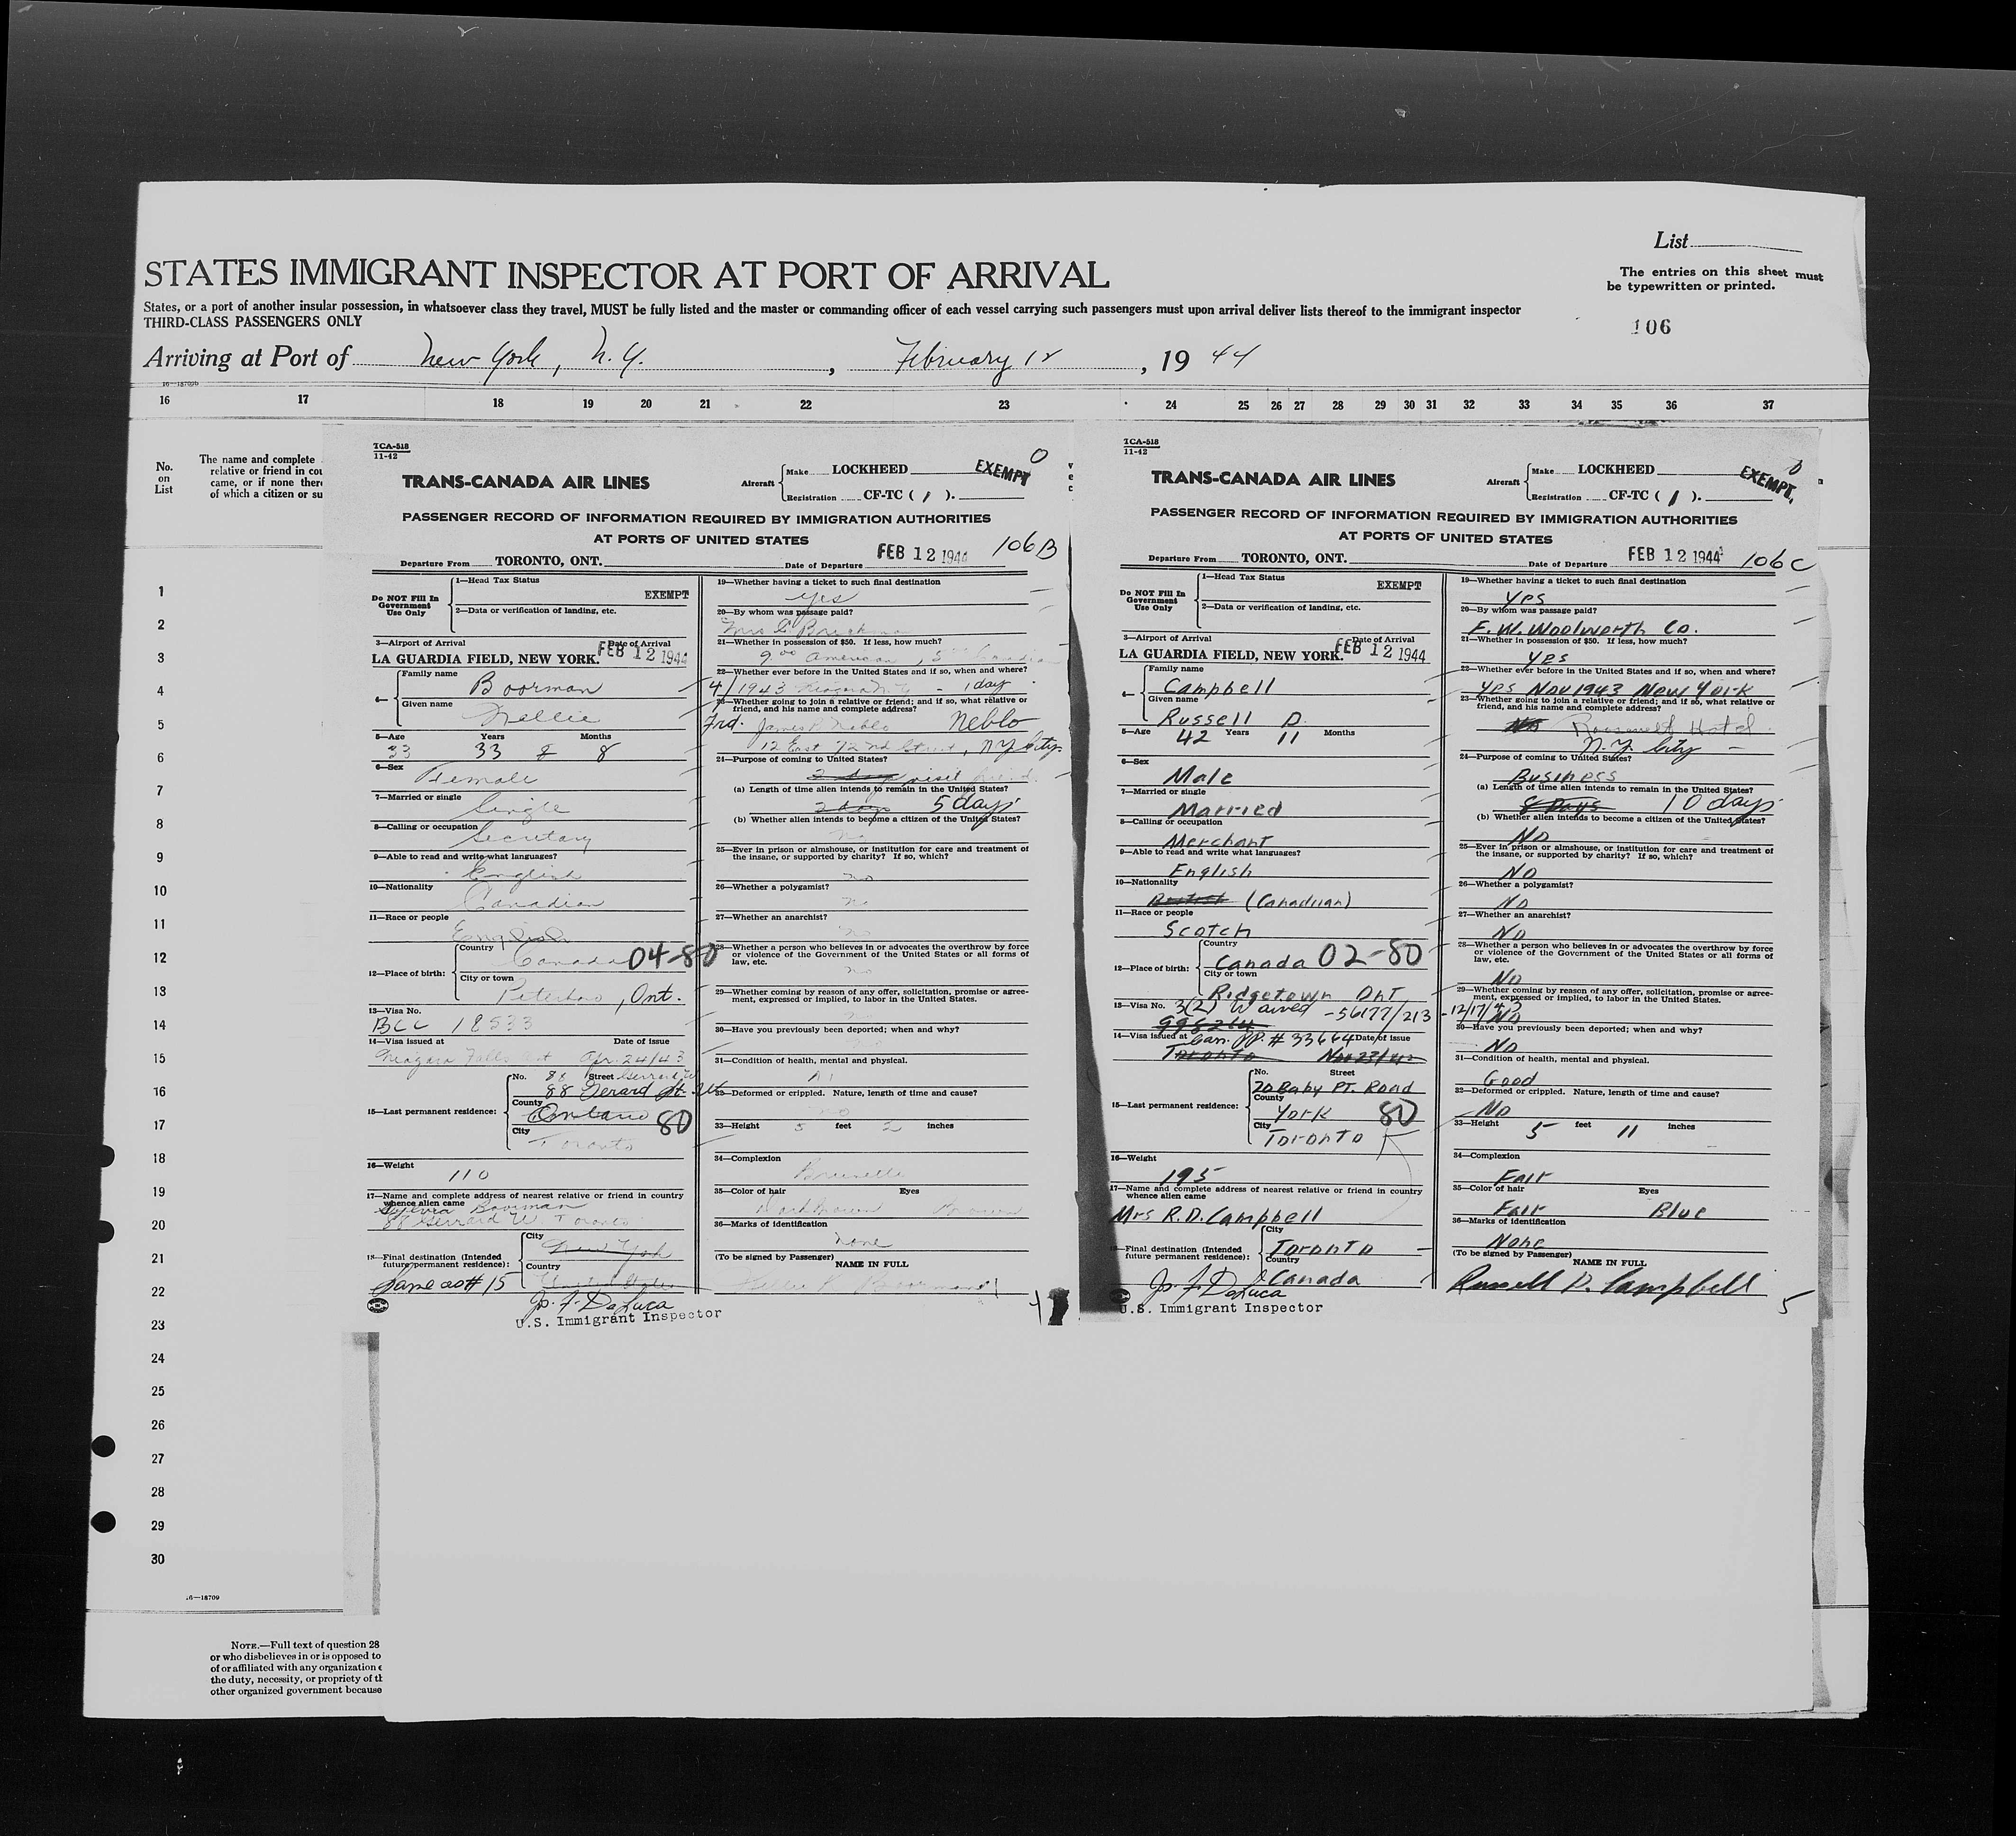 List
STATES IMMIGRANT INSPECTOR AT PORT OF ARRIVAL
The entries on this sheet must
be typewritten or printed.
States, or a port of another insular possession, in whatsoever class they travel, MUST be fully listed and the master or commanding officer of each vessel carrying such passengers must upon arrival deliver lists thereof to the immigrant inspector
THIRD-CLASS PASSENGERS ONLY
106
Arriving at Port of New York, N.Y., February 12, 1944
16—18709b
16 17 18 19 20 21 22 23 24 25 26 27 28 29 30 31 32 33 34 35 36 37
No.
on
List
The name and complete
relative or friend in cou
came, or if none there
of which a citizen or su
1
2
3
4
5
6
7
8
9
10
11
12
13
14
15
16
17
18
19
20
21
22
23
24
25
26
27
28
29
30
16—18709
NOTE.—Full text of question 28
or who disbelieves in or is opposed to
of or affiliated with any organization e
the duty, necessity, or propriety of th
other organized government because
TCA-518
11-42
TRANS-CANADA AIR LINES
Aircraft Make LOCKHEED
Registration CF-TC ( / ).
EXEMPT
0
PASSENGER RECORD OF INFORMATION REQUIRED BY IMMIGRATION AUTHORITIES
AT PORTS OF UNITED STATES
106B
Departure From TORONTO, ONT. Date of Departure FEB 12 1944
Do NOT Fill In
Government
Use Only
1—Head Tax Status
EXEMPT
2—Data or verification of landing, etc.
3—Airport of Arrival Date of Arrival
LA GUARDIA FIELD, NEW YORK. FEB 12 1944
4— Family name
Boorman
Given name
Nellie
5—Age Years Months
33 33 & 8
6—Sex
Female
7—Married or single
Single
8—Calling or occupation
Secretary
9—Able to read and write what languages?
English
10—Nationality
Canadian
11—Race or people
English
12—Place of birth: Country
Canada 04-80
City or town
Peterboro, Ont.
13—Visa No.
BCC 18533
14—Visa issued at Date of issue
Niagara Falls Ont Apr. 24/43
15—Last permanent residence: No. 88 Street Gerrard W
88 Gerard St. W
County
Ontario 80
City
Toronto
16—Weight
110
17—Name and complete address of nearest relative or friend in country
whence alien came
Sylvia Boorman
88 Gerrard W. Toronto
18—Final destination (Intended
future permanent residence): City
New York
Country
United States
Same as #15
Jo. F. DeLuca
U.S. Immigrant Inspector
19—Whether having a ticket to such final destination
yes
20—By whom was passage paid?
21—Whether in possession of $50. If less, how much?
9.00 American,
22—Whether ever before in the United States and if so, when and where?
4/1943 - 1 day
23—Whether going to join a relative or friend; and if so, what relative or
friend, and his name and complete address?
Frd. James Neblo Neblo
12 East 72nd Street, NY City.
24—Purpose of coming to United States?
visit friend
(a) Length of time alien intends to remain in the United States?
2 days 5 days
(b) Whether alien intends to become a citizen of the United States?
no
25—Ever in prison or almshouse, or institution for care and treatment of
the insane, or supported by charity? If so, which?
no
26—Whether a polygamist?
no
27—Whether an anarchist?
no
28—Whether a person who believes in or advocates the overthrow by force
or violence of the Government of the United States or all forms of
law, etc.
no
29—Whether coming by reason of any offer, solicitation, promise or agree-
ment, expressed or implied, to labor in the United States.
no
30—Have you previously been deported; when and why?
no
31—Condition of health, mental and physical.
A1
32—Deformed or crippled. Nature, length of time and cause?
no
33—Height 5 feet 2 inches
34—Complexion
Brunette
35—Color of hair Eyes
Dark brown Brown
36—Marks of identification
none
(To be signed by Passenger) NAME IN FULL
TCA-518
11-42
TRANS-CANADA AIR LINES
Aircraft Make LOCKHEED
Registration CF-TC ( / ).
EXEMPT
0
PASSENGER RECORD OF INFORMATION REQUIRED BY IMMIGRATION AUTHORITIES
AT PORTS OF UNITED STATES
106C
Departure From TORONTO, ONT. Date of Departure FEB 12 1944
Do NOT Fill In
Government
Use Only
1—Head Tax Status
EXEMPT
2—Data or verification of landing, etc.
3—Airport of Arrival Date of Arrival
LA GUARDIA FIELD, NEW YORK. FEB 12 1944
4— Family name
Campbell
Given name
Russell D.
5—Age Years Months
42 11
6—Sex
Male
7—Married or single
Married
8—Calling or occupation
Merchant
9—Able to read and write what languages?
English
10—Nationality
British (Canadian)
11—Race or people
Scotch
12—Place of birth: Country
Canada 02-80
City or town
Ridgetown Ont
13—Visa No. 3(2) Waived -56177/213 -12/17/43
998264
14—Visa issued at Can. PP. # 33664 Date of issue
Toronto Nov 23/42
15—Last permanent residence: No. Street
20 Baby Pt. Road
County
York 80
City
Toronto
16—Weight
195
17—Name and complete address of nearest relative or friend in country
whence alien came
Mrs R.D. Campbell
18—Final destination (Intended
future permanent residence): City
Toronto
Country
Canada
Jo. F. DeLuca
U.S. Immigrant Inspector
19—Whether having a ticket to such final destination
yes
20—By whom was passage paid?
F. W. Woolworth Co.
21—Whether in possession of $50. If less, how much?
yes
22—Whether ever before in the United States and if so, when and where?
yes Nov 1943 New York
23—Whether going to join a relative or friend; and if so, what relative or
friend, and his name and complete address?
No Roosevelt Hotel
N.Y. City
24—Purpose of coming to United States?
Business
(a) Length of time alien intends to remain in the United States?
8 Days 10 days
(b) Whether alien intends to become a citizen of the United States?
No
25—Ever in prison or almshouse, or institution for care and treatment of
the insane, or supported by charity? If so, which?
No
26—Whether a polygamist?
No
27—Whether an anarchist?
No
28—Whether a person who believes in or advocates the overthrow by force
or violence of the Government of the United States or all forms of
law, etc.
No
29—Whether coming by reason of any offer, solicitation, promise or agree-
ment, expressed or implied, to labor in the United States.
No
30—Have you previously been deported; when and why?
No
31—Condition of health, mental and physical.
Good
32—Deformed or crippled. Nature, length of time and cause?
No
33—Height 5 feet 11 inches
34—Complexion
Fair
35—Color of hair Eyes
Fair Blue
36—Marks of identification
None
(To be signed by Passenger) NAME IN FULL
Russell D. Campbell
5